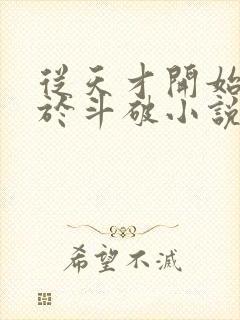 從天才開始
於斗破小說
希望不滅